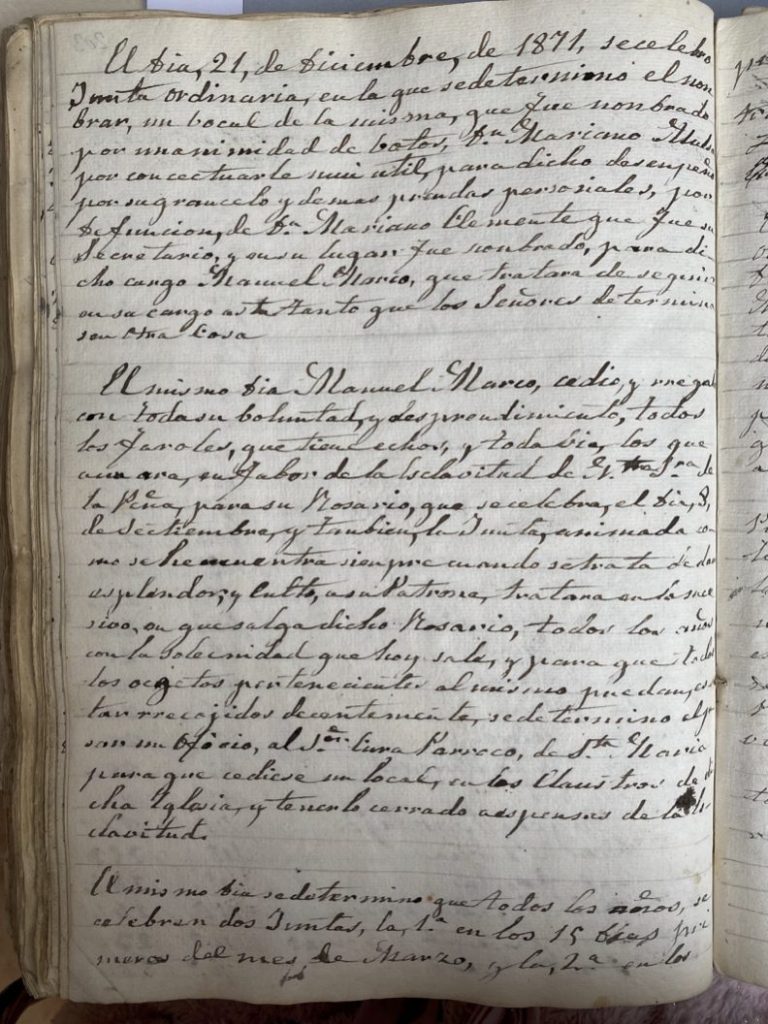 El Dia, 21, de Diciembre, de 1871, se celebro
Junta ordinaria, en la que se determino el non
brar, un bocal de la misma, que fue nonbrado
por unanimidad de botos, Dn Mariano
por concectuarle mui util, para dicho desenpeño
por su gran celo y demas prendas personales, por
Defuncion, de Dn Mariano Clemente que fue su
Secretario, y en su lugar fue nonbrado, para di
cho cargo Manuel Marco, que tratara de seguir
en su cargo asta tanto que los Señores determin
sen otra Cosa
El mismo Dia Manuel Marco, cedio, y rregal
con toda su boluntad, y desprendimiento, todos
los Faroles, que tiene echos, y toda bia, los que
acu ara, en fabor de la Esclavitud de N. tra Sra. de
la Peña, para su Rosario, que se celebra, el Dia, 8,
de Setiembre, y tanbien, la Junta, animada co
mo se hencuentra sienpre cuando se trata de dar
esplendor, y Culto, a su Patrona, tratara en lo suce
sivo, en que salga dicho Rosario, todos los años
con la solecnidad que hoy sale, y para que todos
los ogetos pertenecientes al mismo puedan, es
tar rrecojidos decentemente, se determino el p
sar un Oficio, al Sor Cura Parroco, de Sta Maria
para que cediese un local, en los Claustros de di
cha Iglesia, y tenerlo cerrado a espensas de la Es
clavitud.
El mismo Dia se determino que todos los años, se
celebren dos Juntas, la, 1.a en los 15 Dias pri
meros del mes de Marzo, y la, 2.a en los